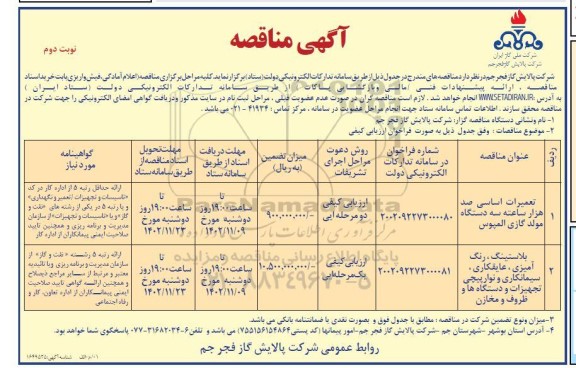 آگهی مناقصه
نوبت دوم
شرکت ملی گاز ایران
شرکت پالایش گاز فجر جم
شرکت پالایش گاز فجر جم در نظر دارد مناقصه های مندرج در جدول ذیل از طریق سامانه تدارکات الکترونیکی دولت (ستاد) برگزار نماید. کلیه مراحل برگزاری مناقصه (اعلام آمادگی، فیش واریزی بابت خرید اسناد
مناقصه، ارائه پیشنهادات فنی /مالی و بازگشایی پاکات) از طریق سامانه تدارکات الکترونیکی دولت (ستاد ایران)
به آدرس: WWW.SETADIRAN.IR انجام خواهد شد. لازم است مناقصه گران در صورت عدم عضویت قبلی، مراحل ثبت نام در سایت مذکور و دریافت گواهی امضای الکترونیکی را جهت شرکت در
مناقصه محقق سازند. اطلاعات تماس سامانه ستاد جهت انجام مراحل عضویت در سامانه، مرکز تماس: ۴۱۹۳۴ - ۰۲۱ می باشد.
۱- نام و نشانی دستگاه مناقصه گزار: شرکت پالایش گاز فجر جم
۲- موضوع مناقصات: وفق جدول ذیل به صورت فراخوان ارزیابی کیفی
ردیف
عنوان مناقصه
شماره فراخوان در سامانه تدارکات الکترونیکی دولت
روش دعوت مراحل اجرای تشریفات
میزان تضمین (به ریال)
مهلت دریافت اسناد از طریق سامانه ستاد
مهلت تحویل اسناد مناقصه از طریق سامانه ستاد
گواهینامه مورد نیاز
۱
تعمیرات اساسی صد هزار ساعته سه دستگاه مولد گازی المپوس
۲۰۰۲۰۹۲۲۷۳۰۰۰۰۸۰
ارزیابی کیفی دو مرحله ایی
۹۰۰,۰۰۰,۰۰۰/-
تا ساعت ۱۹:۰۰ روز دوشنبه مورخ ۱۴۰۲/۱۱/۰۹
تا ساعت ۱۹:۰۰ روز دوشنبه مورخ ۱۴۰۲/۱۱/۲۳
ارائه حداقل رتبه ۵ از اداره کار در کد «تاسیسات و تجهیزات /تعمیر و نگهداری» و یا رتبه ۵ در یکی از رشته های «نفت و گاز» و یا «تاسیسات و تجهیزات» از سازمان مدیریت و برنامه ریزی و همچنین تایید صلاحیت ایمنی پیمانکاران از اداره کار
۲
بلاستینگ، رنگ آمیزی، عایقکاری، سیمانکاری و نوارپیچی تجهیزات و دستگاه ها و ظروف و مخازن
۲۰۰۲۰۹۲۲۷۳۰۰۰۰۸۱
ارزیابی کیفی یک مرحله ایی
۱۰,۵۰۰,۰۰۰,۰۰۰/-
تا ساعت ۱۹:۰۰ روز دوشنبه مورخ ۱۴۰۲/۱۱/۰۹
تا ساعت ۱۹:۰۰ روز دوشنبه مورخ ۱۴۰۲/۱۱/۲۳
ارائه رتبه ۵ رشته «نفت و گاز» از سازمان مدیریت و برنامه ریزی و یا تائیدیه معتبر و مرتبط از سایر مراجع ذیصلاح و همچنین ارائه گواهی تایید صلاحیت ایمنی پیمانکاران از اداره تعاون، کار و رفاه اجتماعی
۳- میزان و نوع تضمین شرکت در مناقصه: مطابق با جدول فوق و بصورت نقدی یا ضمانتنامه بانکی می باشد.
۴- آدرس استان بوشهر - شهرستان جم - شرکت پالایش گاز فجر جم - امور پیمانها (کد پستی ۷۵۵۱۵۶۱۵۴۸۶۴) می باشد و تلفن ۶-۳۱۶۸۲۰۳۴-۰۷۷ پاسخگوی شما خواهد بود.
روابط عمومی شرکت پالایش گاز فجر جم
شناسه آگهی: ۱۶۴۹۵۲۵